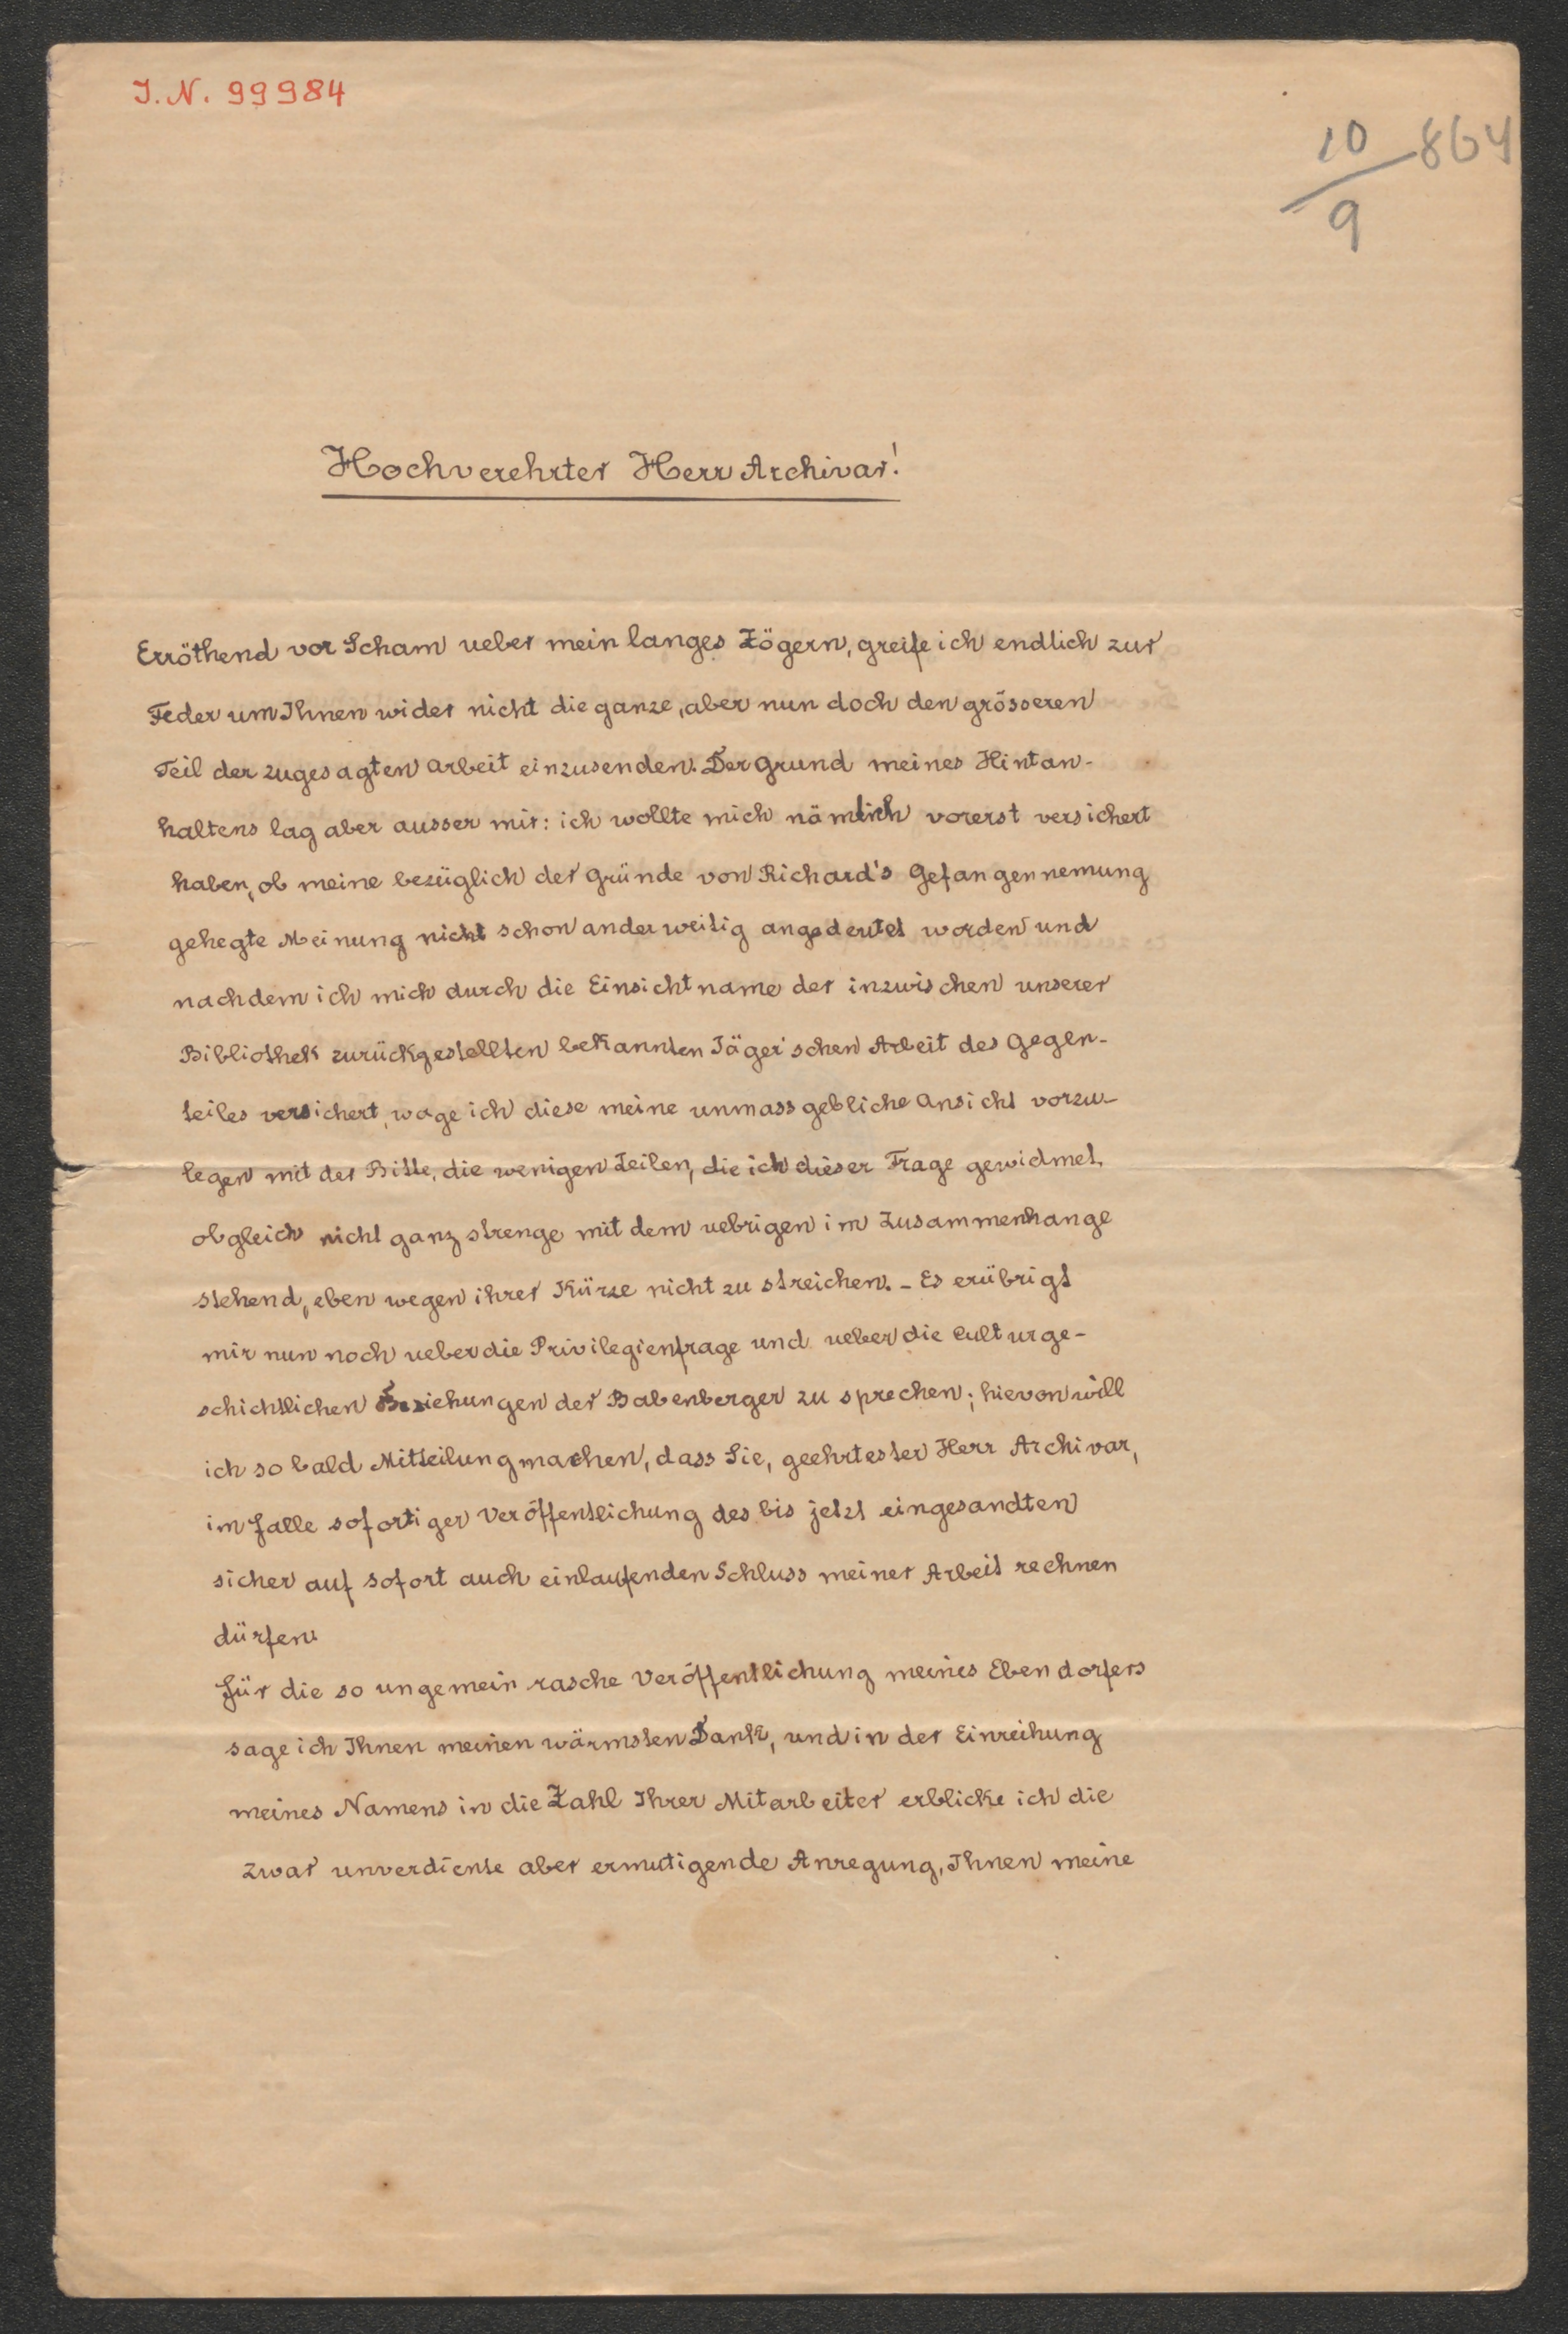 J. N. 99984
10/9 864
Hochverehrter Herr Archivar!
Erröthend vor Scham ueber mein langes Zögern, greife ich endlich zur
Feder um Ihnen wider nicht die ganze, aber nun doch den grösseren
Teil der zugesagten Arbeit einzusenden. Der Grund meines Hintan-
haltens lag aber ausser mir: ich wollte mich nämlich vorerst versichert
haben, ob meine bezüglich der Gründe von Richard's Gefangennemung
gehegte Meinung nicht schon anderweitig angedeutet worden und
nachdem ich mich durch die Einsichtname der inzwischen unserer
Bibliothek zurückgestellten bekannten Jäger'schen Arbeit des Gegen-
teiles versichert, wage ich diese meine unmassgebliche Ansicht vorzu-
legen mit der Bitte, die wenigen Zeilen, die ich dieser Frage gewidmet,
obgleich nicht ganz strenge mit dem uebrigen im Zusammenhange
stehend, eben wegen ihrer Kürze nicht zu streichen. - Es erübrigt
mir nun noch ueber die Privilegienfrage und ueber die culturge-
schichtlichen Beziehungen der Babenberger zu sprechen; hievon will
ich so bald Mitteilung machen, dass Sie, geehrtester Herr Archivar,
im Falle sofortiger Veröffentlichung des bis jetzt eingesandten
sicher auf sofort auch einlaufenden Schluss meiner Arbeit rechnen
dürfen.
Für die so ungemein rasche Veröffentlichung meines Ebendorfers
sage ich Ihnen meinen wärmsten Dank, und in der Einreihung
meines Namens in die Zahl Ihrer Mitarbeiter erblicke ich die
zwar unverdiente aber ermutigende Anregung, Ihnen meine